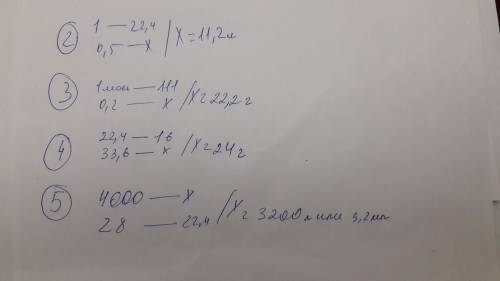 ② 1 — 22,4 / X = 11,2л
0,5 — X
③ 1 моль — 111
0,2 — X / X = 22,2 г
④ 22,4 — 16
33,6 — X / X = 24 г
⑤ 4000 — X
28 — 22,4 / X = 3200 л или 3,2 м³